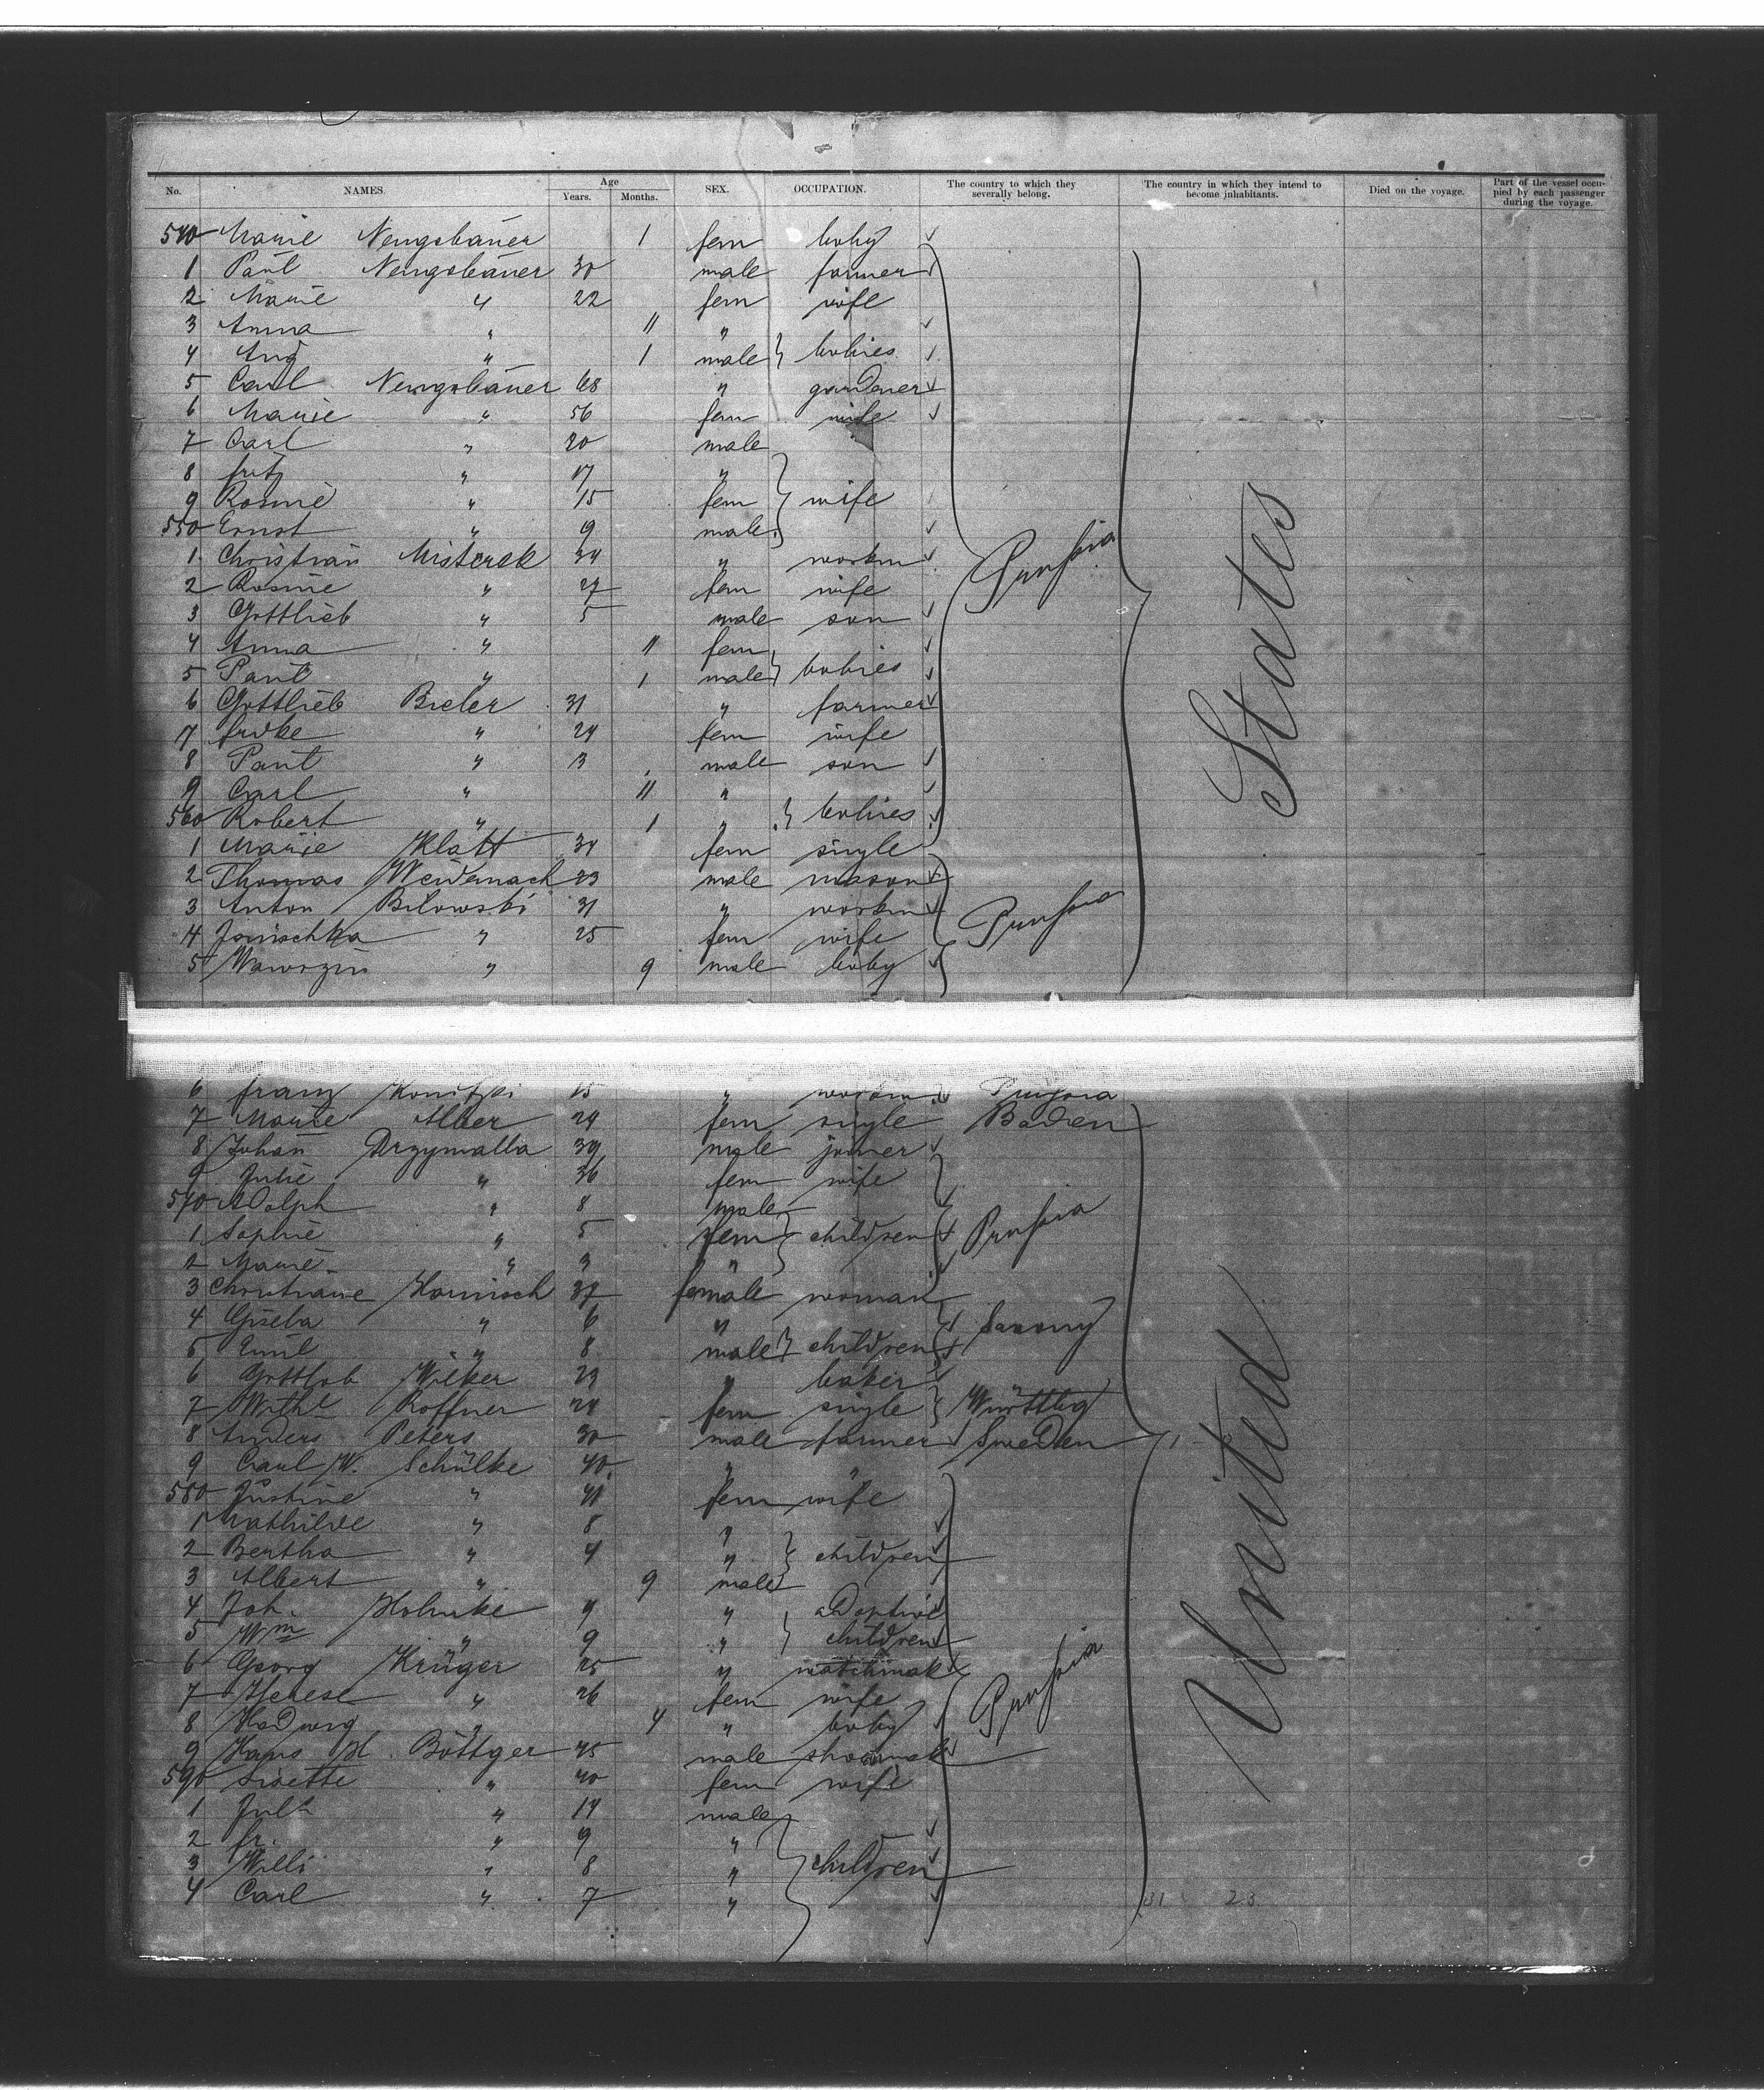 No. NAMES. Age Years. Months. SEX. OCCUPATION. The country to which they severally belong. The country in which they intend to become inhabitants. Died on the voyage. Part of the vessel occupied by each passenger during the voyage.
540 Marie Neugebauer 1 fem baby
1 Paul Neugebauer 30 male farmer
2 Marie " 22 fem wife
3 Anna " 11 "
4 Aug " 1 male babies
5 Carl Neugebauer 68 " gardener
6 Marie " 56 fem wife
7 Carl " 20 male
8 Fritz " 17 "
9 Rosine " 15 fem wife
550 Ernst " 9 male
1 Christian Misterek 34 " workm Prussia
2 Rosine " 27 fem wife
3 Gottlieb " 5 male son
4 Anna " 11 fem
5 Paul " 1 male babies
6 Gottlieb Bieler 31 " farmer
7 " 24 fem wife
8 Paul " 3 male son
9 Carl " 11 "
560 Robert " 1 " babies
1 Marie Klatt 34 fem single
2 Thomas Weidemach 23 male mason
3 Anton Bilowski 31 " workm Prussia
4 " 25 fem wife
5 Wawrzin " 9 male baby
States
6 Franz 15 " workm Prussia
7 Marie Alber 24 fem single Baden
8 Johan Drzymalla 39 male joiner
9 Julie " 36 fem wife
570 Adolph " 8 male
1 Sophie " 5 fem children Prussia
2 Marie " 3 "
3 Christiane Harnisch 37 female woman
4 Gisela " 6 " Saxony
5 Emil " 8 male children
6 Gottlob Wilker 23 " baker
7 Wilhe Roffner 24 fem single Württbg
8 Anders Peters 30 male farmer Sweden
9 Carl W. Schülke 40 " "
580 Justine " 41 fem wife
1 Mathilde " 8 "
2 Bertha " 4 " children
3 Albert " 9 male
4 Joh. Hohnke 9 " adoptive
5 Wm " 9 " children
6 Georg Krüger 25 " watchmak
7 Therese " 26 fem wife Prussia
8 Hedwig " 4 " baby
9 Hans H. Böttger 45 male shoemak
590 Lisette " 40 fem wife
1 Jul " 14 male
2 Fr. " 9 "
3 Willi " 8 " children
4 Carl " 7 "
United
31 23